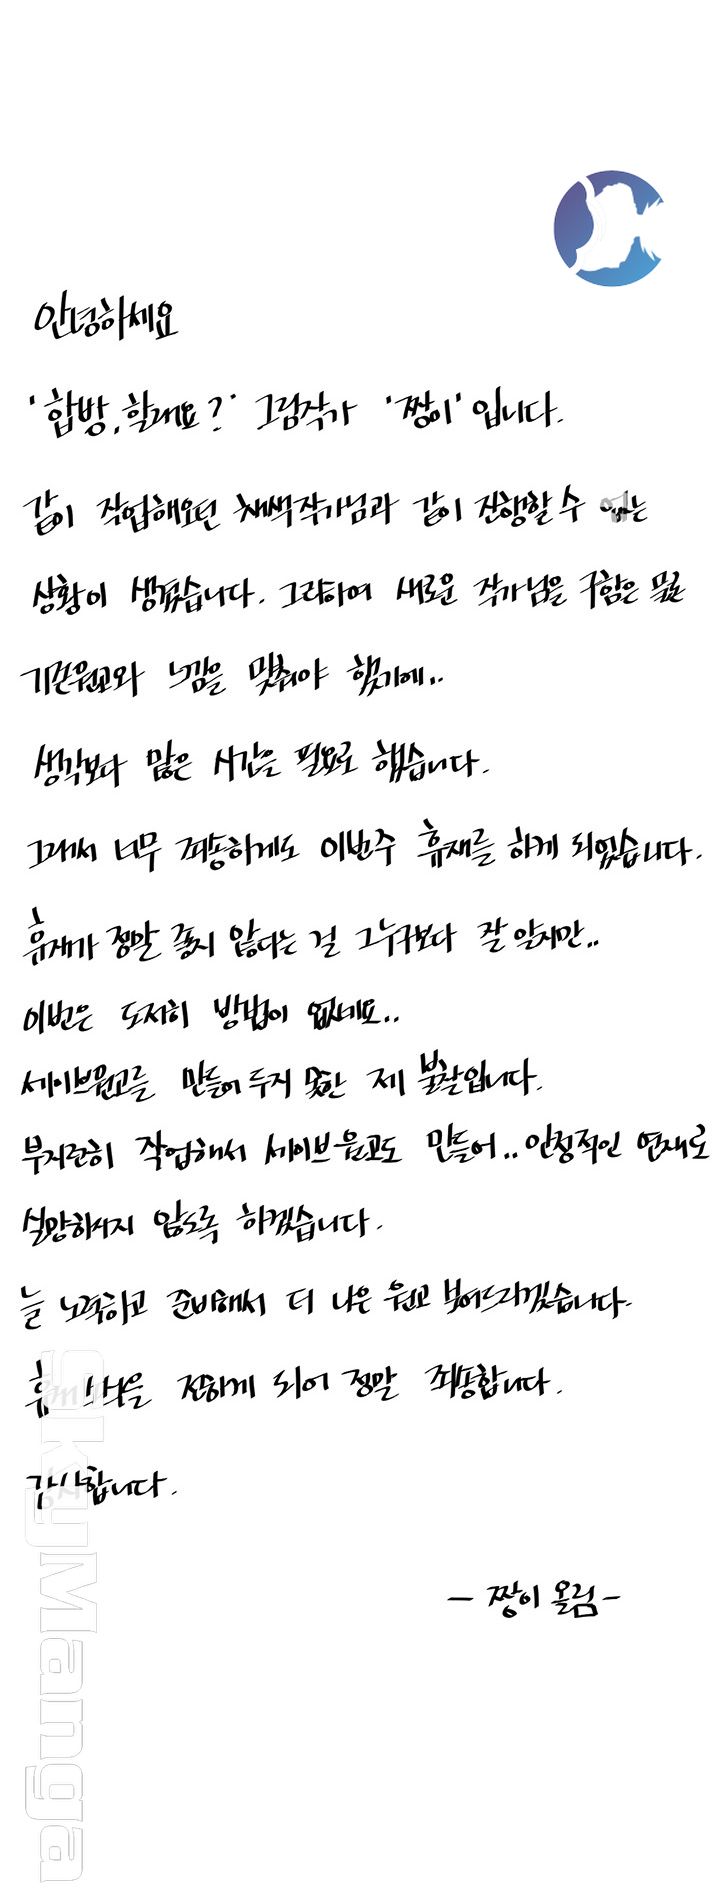 안녕하세요
'합방, 할래요?' 그림작가 '짱이' 입니다.
같이 작업해오던 채색작가님과 같이 진행할 수 없는
상황이 생겼습니다. 그리하여 새로운 작가님을 구함은 물론
기존원고와 느낌을 맞춰야 했기에..
생각보다 많은 시간을 필요로 했습니다.
그래서 너무 죄송하게도 이번주 휴재를 하게 되었습니다.
휴재가 정말 좋지 않다는 걸 그누구보다 잘 알지만..
이번은 도저히 방법이 없네요..
세이브원고를 만들어 두지 못한 제 불찰입니다.
부지런히 작업해서 세이브원고도 만들어.. 안정적인 연재로
실망하시지 않도록 하겠습니다.
늘 노력하고 준비해서 더 나은 원고 보여드리겠습니다.
휴 소식을 전하게 되어 정말 죄송합니다.
감사합니다.
- 짱이 올림 -
SkyManga